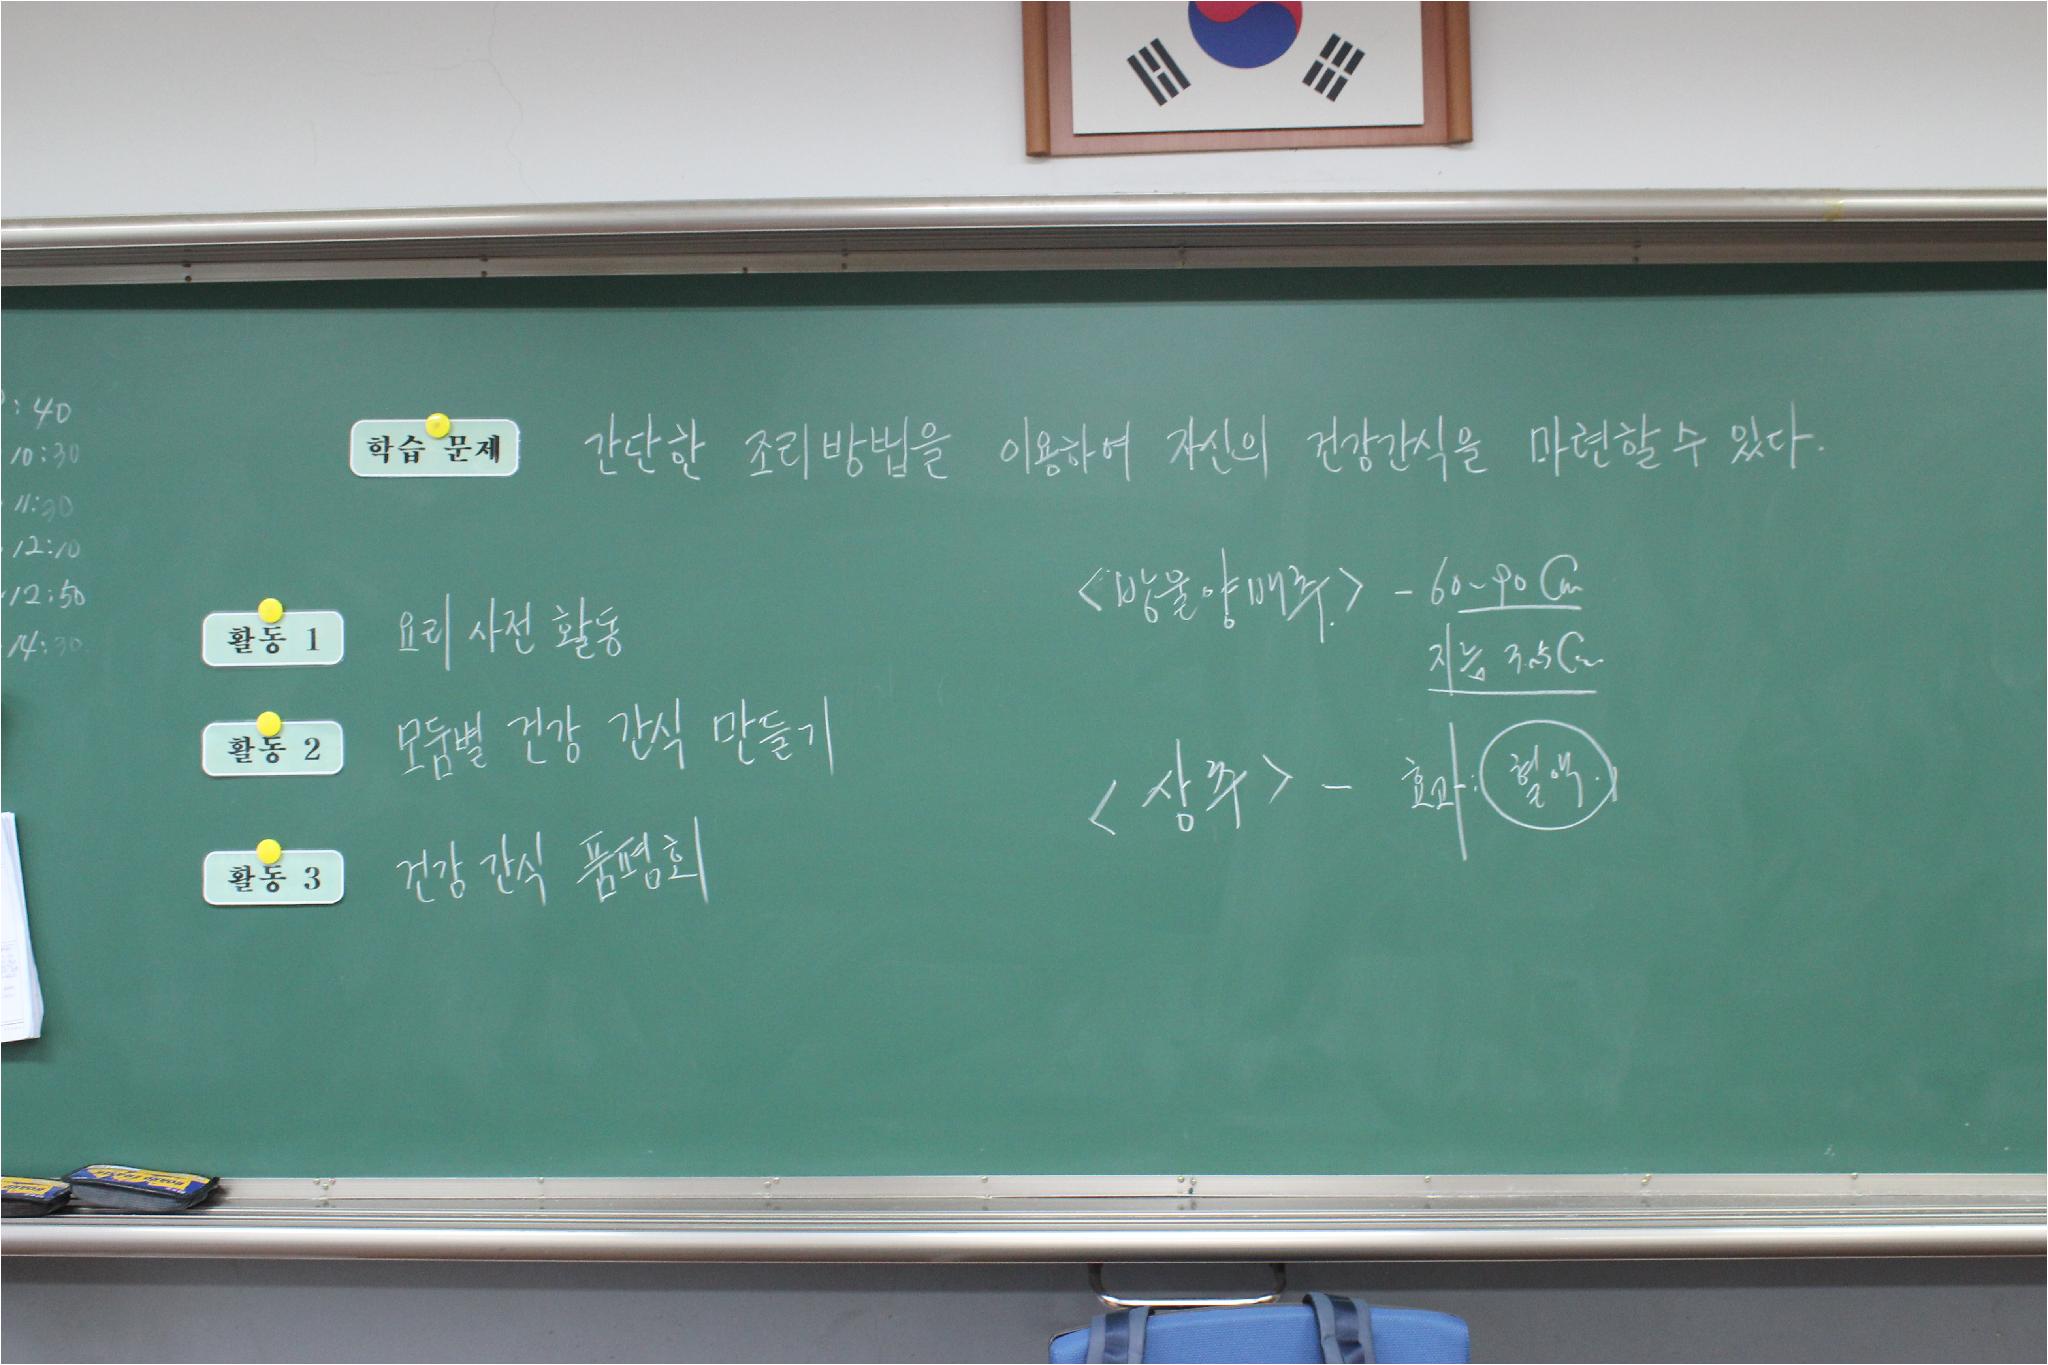 : 40
10:30
11:30
12:10
12:50
14:30
학습 문제 간단한 조리방법을 이용하여 자신의 건강간식을 마련할 수 있다.
활동 1 요리 사전 활동
활동 2 모둠별 건강 간식 만들기
활동 3 건강 간식 품평회
<방울양배추.> - 60~90 Cm
지능 3.5 Cm
<상추> - 효과: 혈액.